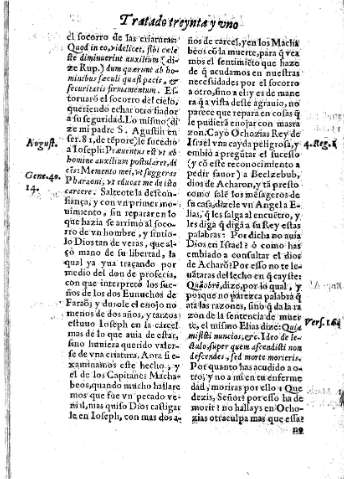 Tratado treynta y vno
el socorro de las criaturas:
Quod in eo, videlicet, sibi cœle
ste diminuerint auxilium (di-
ze Rup.) dum quærunt ab ho-
minibus sæculi quasi pacis, &
securitatis firmamentum. Es-
toruaró el socorro del cielo,
queriédo echar otro fiador
a su seguridad. Lo mismo (di-
ze mi padre S. Agustin en
ser. 81. de tépore) le sucedio
a Ioseph: Præuentus est vt ab
homine auxilium postularet, di-
cés: Memento mei, vt suggeras
Pharaoni, vt educat me de isto
carcere. Salteole la descon-
fiança, y con vn primer mo-
uimiento, sin reparar en lo
que hazia se arrimó al soco-
rro de vn hombre, y sintio-
lo Dios tan de veras, que al-
çó mano de su libertad, la
qual ya yua traçando por
medio del don de profecia,
con que interpretó los sue-
ños de los dos Eunuchos de
Faraõ; y duróle el enojo no
menos de dos años, y tantos
estuuo Ioseph en la carcel
mas de lo que auia de estar,
sino huuiera querido valer-
se de vna criatura. Aora si e-
xaminamos este hecho, y
el de los Capitanes Macha-
beos, quando mucho hallare
mos que fue vn pecado ve-
nial, mas quiso Dios castigar
le en Ioseph, con mas dos a-
August.
Gene. 40.
14.
ños de carcel, y en los Macha
beos cõ la muerte, para q̃ vea
mos el sentimiéto que haze
de q̃ acudamos en nuestras
necessidades por el socorro
a otro, sino a el: y es de mane
ra q̃ a vista deste agrauio, no
parece que repara en cosas q̃
le pudierã enojar con mas ra
zon. Cayó Ochozias Rey de
Israel vna cayda peligrosa, y
embió a pregũtar el sucesso
(y cõ este reconocimiento a
pedir sanar) a Beelzebub,
dios de Acharon, y tã presto
como saliẽ los mẽsageros de
su casa, dizele vn Angel a E-
lias, q̃ les salga al encuẽtro, y
les diga q̃ digã a su Rey estas
palabras: Por dicha no auia
Dios en Israel? ó como has
embiado a consultar el dios
de Acharõ? Por esso no te le-
uãtaras del lecho en q̃ cayste:
Quãobré, dize, por lo qual, y
porque no parezca palabra q̃
ata las razones, sino q̃ da la ra
zon de la sentencia de muer
te, el mismo Elias dize: Quia
misisti nuncios, &c. Ideo de le-
ctulo, super quem ascendisti non
descendes, sed morte morieris.
Por quanto has acudido a o-
tro, y no a mi en tu enferme
dad, moriras por ello: Que
dezis, Señor? por esso ha de
morir? no hallays en Ocho-
zias otra culpa mas que essa?
4. Reg. 1
Vers. 16.